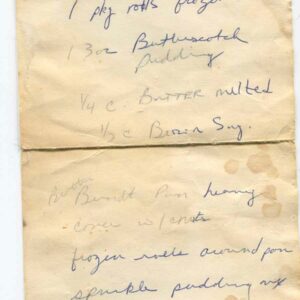 1 pkg rolls froze
1 3oz Butterscotch
pudding
1/4 c. Butter melted
1/2 c Brown Sug.
Butter
Bundt Pan heavy
cover w/
frozen rolls around pan
sprinkle pudding mix